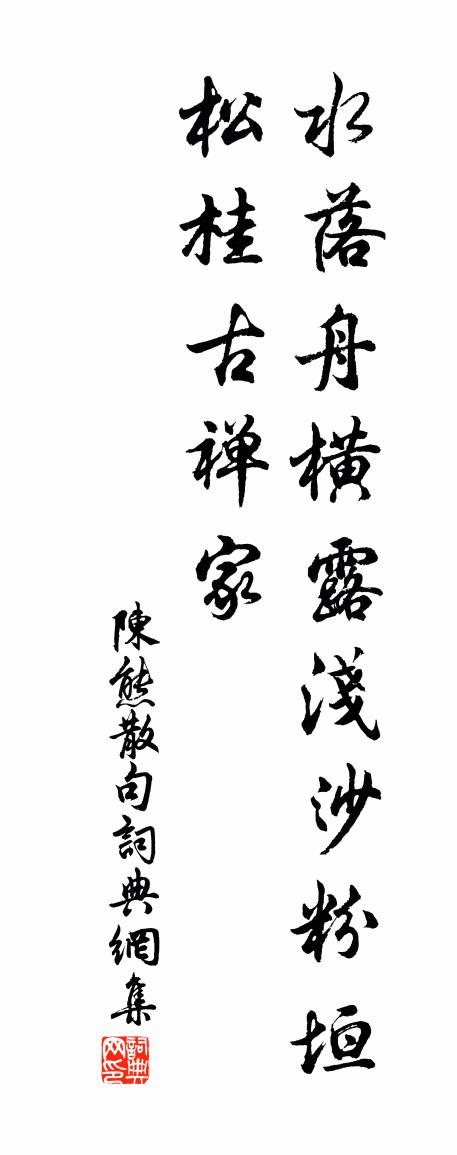 水落舟橫露淺沙粉垣
松桂古禅家
陳熊散句詞典網集
詞典网印